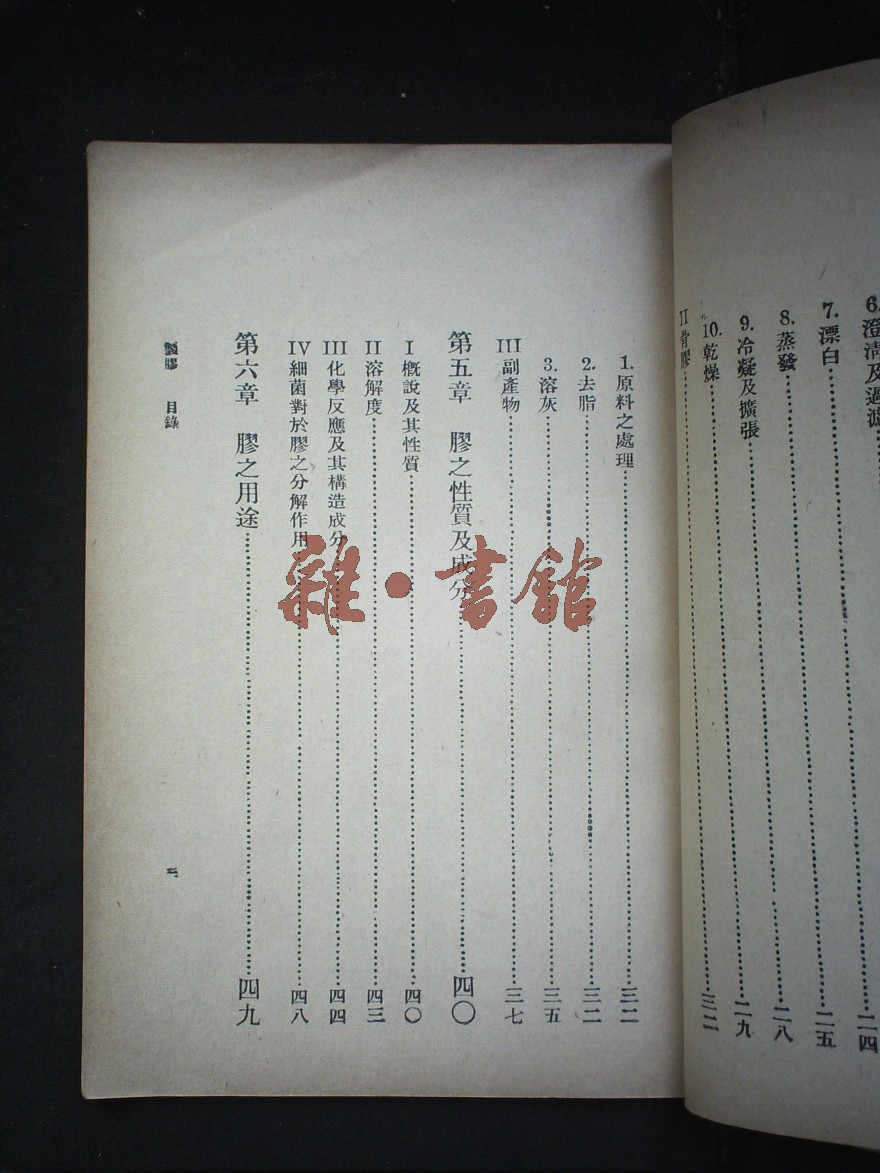 6. 澄清及過濾……二四
7. 漂白……二五
8. 蒸發……二八
9. 冷凝及擴張……二九
10. 乾燥……三二
II 骨膠……三二
1. 原料之處理……三二
2. 去脂……三二
3. 溶灰……三五
III 副產物……三七
第五章 膠之性質及成分……四〇
I 概說及其性質……四〇
II 溶解度……四三
III 化學反應及其構造成分……四四
IV 細菌對於膠之分解作用……四八
第六章 膠之用途……四九
製膠 目錄
雜·書館